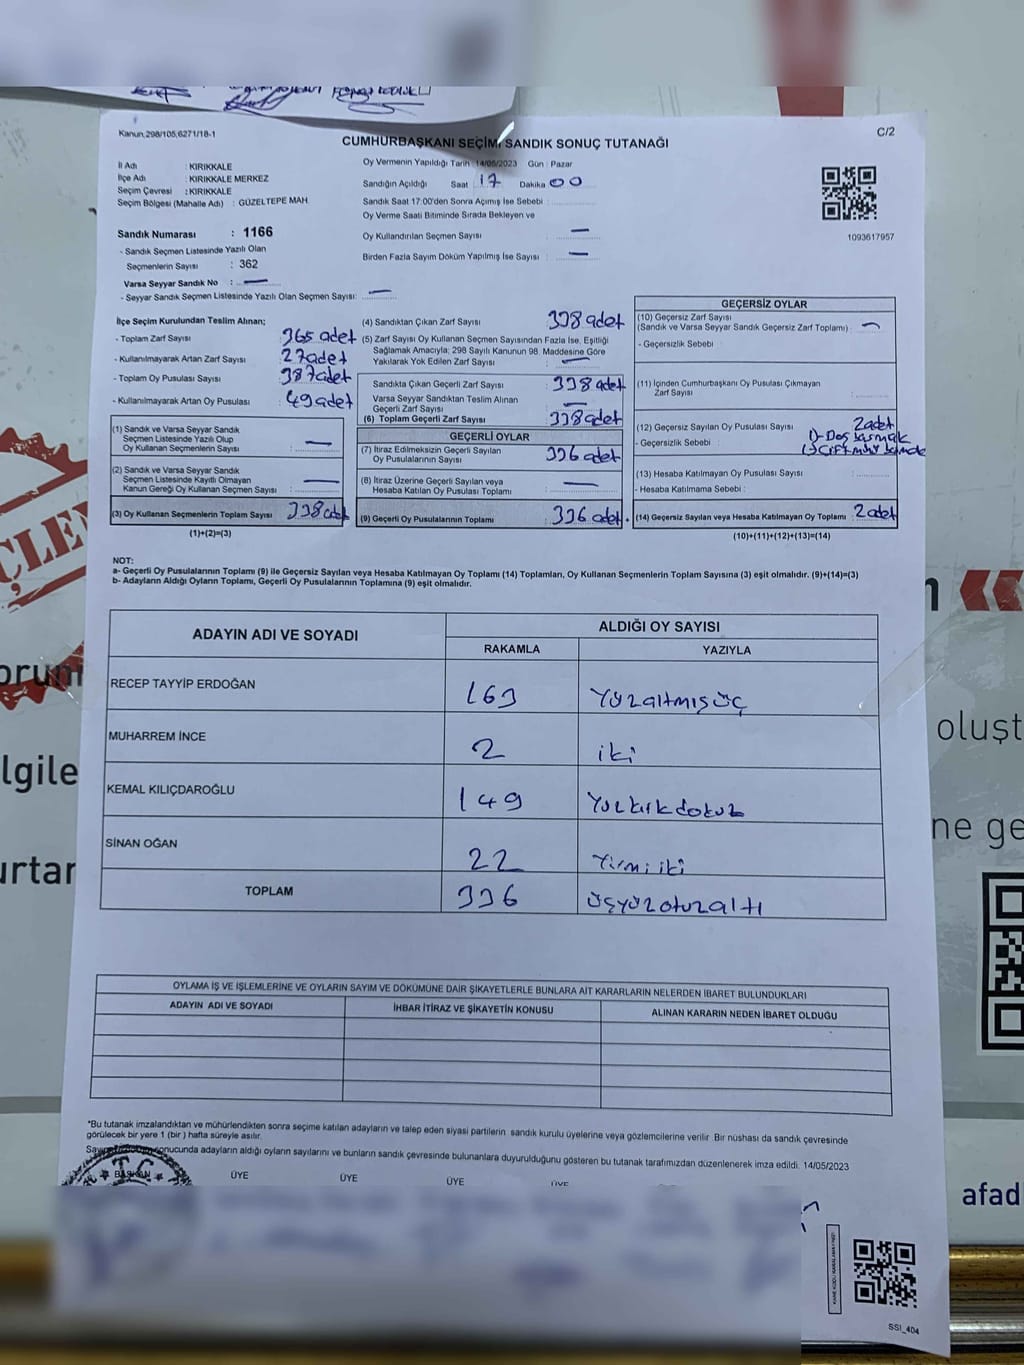 Kanun,298/105,6271/18-1
C/2
CUMHURBAŞKANI SEÇİMİ SANDIK SONUÇ TUTANAĞI
İl Adı : KIRIKKALE
İlçe Adı : KIRIKKALE MERKEZ
Seçim Çevresi : KIRIKKALE
Seçim Bölgesi (Mahalle Adı) : GÜZELTEPE MAH.
Oy Vermenin Yapıldığı Tarih : 14/05/2023 Gün : Pazar
Sandığın Açıldığı Saat 17 Dakika 00
Sandık Saat 17:00'den Sonra Açımış İse Sebebi :
Oy Verme Saati Bitiminde Sırada Bekleyen ve
Oy Kullandırılan Seçmen Sayısı : —
Birden Fazla Sayım Döküm Yapılmış İse Sayısı : —
1093617957
Sandık Numarası : 1166
- Sandık Seçmen Listesinde Yazılı Olan
Seçmenlerin Sayısı : 362
Varsa Seyyar Sandık No : —
- Seyyar Sandık Seçmen Listesinde Yazılı Olan Seçmen Sayısı: —
İlçe Seçim Kurulundan Teslim Alınan;
- Toplam Zarf Sayısı : 365 adet
- Kullanılmayarak Artan Zarf Sayısı : 27 adet
- Toplam Oy Pusulası Sayısı : 387 adet
- Kullanılmayarak Artan Oy Pusulası : 49 adet
(1) Sandık ve Varsa Seyyar Sandık
Seçmen Listesinde Yazılı Olup
Oy Kullanan Seçmenlerin Sayısı : —
(2) Sandık ve Varsa Seyyar Sandık
Seçmen Listesinde Kayıtlı Olmayan
Kanun Gereği Oy Kullanan Seçmen Sayısı : —
(3) Oy Kullanan Seçmenlerin Toplam Sayısı : 338 adet
(1)+(2)=(3)
(4) Sandıktan Çıkan Zarf Sayısı : 338 adet
(5) Zarf Sayısı Oy Kullanan Seçmen Sayısından Fazla İse, Eşitliği
Sağlamak Amacıyla; 298 Sayılı Kanunun 98. Maddesine Göre
Yakılarak Yok Edilen Zarf Sayısı : —
Sandıkta Çıkan Geçerli Zarf Sayısı : 338 adet
Varsa Seyyar Sandıktan Teslim Alınan
Geçerli Zarf Sayısı : —
(6) Toplam Geçerli Zarf Sayısı : 338 adet
GEÇERLİ OYLAR
(7) İtiraz Edilmeksizin Geçerli Sayılan
Oy Pusulalarının Sayısı : 336 adet
(8) İtiraz Üzerine Geçerli Sayılan veya
Hesaba Katılan Oy Pusulası Toplamı : —
(9) Geçerli Oy Pusulalarının Toplamı : 336 adet.
GEÇERSİZ OYLAR
(10) Geçersiz Zarf Sayısı
(Sandık ve Varsa Seyyar Sandık Geçersiz Zarf Toplamı) : —
- Geçersizlik Sebebi :
(11) İçinden Cumhurbaşkanı Oy Pusulası Çıkmayan
Zarf Sayısı :
(12) Geçersiz Sayılan Oy Pusulası Sayısı : 2 adet
- Geçersizlik Sebebi :
(13) Hesaba Katılmayan Oy Pusulası Sayısı :
- Hesaba Katılmama Sebebi :
(14) Geçersiz Sayılan veya Hesaba Katılmayan Oy Toplamı : 2 adet
(10)+(11)+(12)+(13)=(14)
NOT:
a- Geçerli Oy Pusulasının Toplamı (9) ile Geçersiz Sayılan veya Hesaba Katılmayan Oy Toplamı (14) Toplamları, Oy Kullanan Seçmenlerin Toplam Sayısına (3) eşit olmalıdır. (9)+(14)=(3)
b- Adayların Aldığı Oyların Toplamı, Geçerli Oy Pusulalarının Toplamına (9) eşit olmalıdır.
ADAYIN ADI VE SOYADI
ALDIĞI OY SAYISI
RAKAMLA YAZIYLA
RECEP TAYYİP ERDOĞAN 163 Yüzaltmışüç
MUHARREM İNCE 2 iki
KEMAL KILIÇDAROĞLU 149 Yüzkırkdokuz
SİNAN OĞAN 22 Yirmi iki
TOPLAM 336 üçyüzotuzaltı
OYLAMA İŞ VE İŞLEMLERİNE VE OYLARIN SAYIM VE DÖKÜMÜNE DAİR ŞİKAYETLERLE BUNLARA AİT KARARLARIN NELERDEN İBARET BULUNDUKLARI
ADAYIN ADI VE SOYADI İHBAR İTİRAZ VE ŞİKAYETİN KONUSU ALINAN KARARIN NEDEN İBARET OLDUĞU
*Bu tutanak imzalandıktan ve mühürlendikten sonra seçime katılan adayların ve talep eden siyasi partilerin sandık kurulu üyelerine veya gözlemcilerine verilir. Bir nüshası da sandık çevresinde
görülecek bir yere 1 (bir) hafta süreyle asılır.
sonucunda adayların aldığı oyların sayılarını ve bunların sandık çevresinde bulunanlara duyurulduğunu gösteren bu tutanak tarafımızdan düzenlenerek imza edildi. 14/05/2023
T.C.
BAŞKAN ÜYE ÜYE ÜYE ÜYE
SSI_404
oluşt
ne ge
afad
lgile
urtar